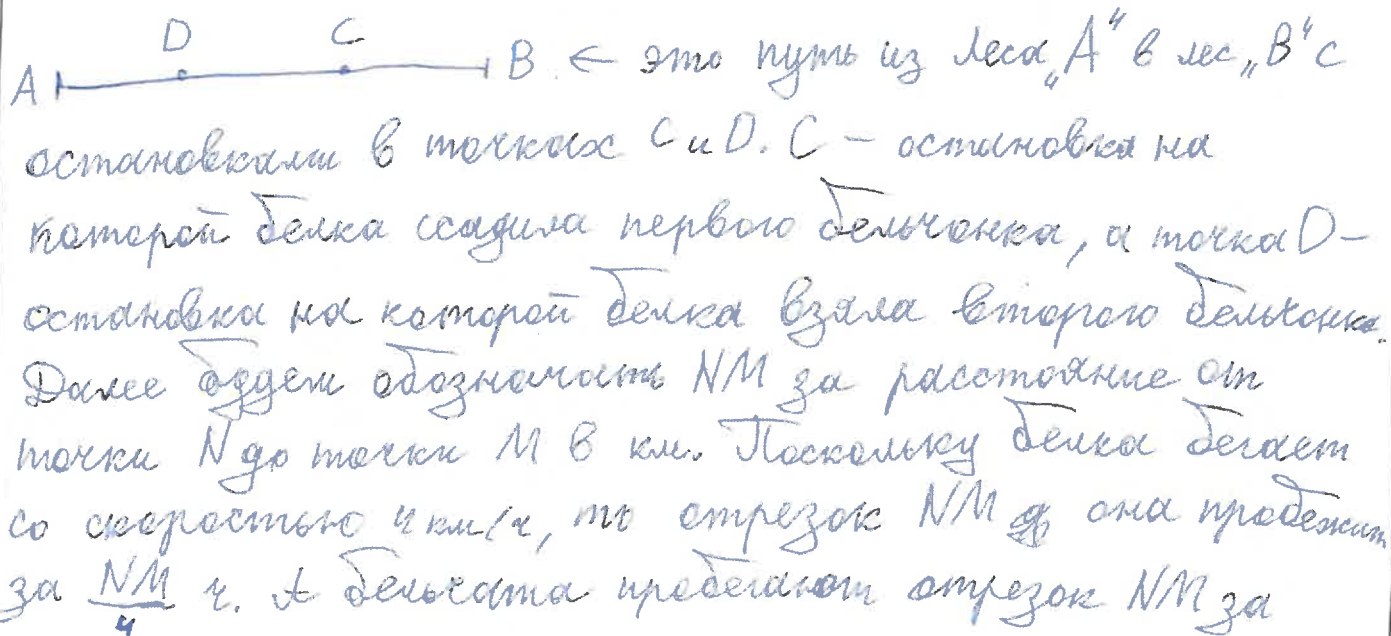 D C
A B ← это путь из леса „A“ в лес „B“ с
остановками в точках C и D. C – остановка на
которой белка ссадила первого бельчонка, а точка D –
остановка на которой белка взяла второго бельчонка.
Далее будем обозначать NM за расстояние от
точки N до точки M в км. Поскольку белка бегает
со скоростью 4 км/ч, то отрезок NM она пробежит
за NM/4 ч. А бельчата пробегают отрезок NM за